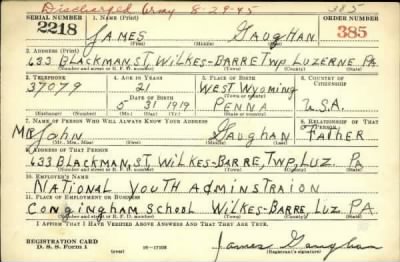 Discharged Army 8-29-45 385
SERIAL NUMBER 1. NAME (Print) ORDER NUMBER
2218 JAMES GAUGHAN 385
(First) (Middle) (Last)
2. ADDRESS (Print)
633 BLACKMAN, ST. WILKES-BARRE TWP LUZERNE PA.
(Number and street or R. F. D. number) (Town) (County) (State)
3. TELEPHONE 4. AGE IN YEARS 5. PLACE OF BIRTH 6. COUNTRY OF CITIZENSHIP
37079 21 WEST WYOMING
DATE OF BIRTH (Town or county)
5 31 1919 PENNA U.S.A.
(Exchange) (Number) (Mo.) (Day) (Yr.) (State or country)
7. NAME OF PERSON WHO WILL ALWAYS KNOW YOUR ADDRESS 8. RELATIONSHIP OF THAT PERSON
MR John GAUGHAN FATHER
(Mr., Mrs., Miss) (First) (Middle) (Last)
9. ADDRESS OF THAT PERSON
633 BLACKMAN, ST. WILKES-BARRE, TWP, LUZ. PA
(Number and street or R. F. D. number) (Town) (County) (State)
10. EMPLOYER'S NAME
NATIONAL YOUTH ADMINSTRAION
11. PLACE OF EMPLOYMENT OR BUSINESS
CONGINGHAM SCHOOL WILKES-BARRE LUZ PA.
(Number and street or R. F. D. number) (Town) (County) (State)
I AFFIRM THAT I HAVE VERIFIED ABOVE ANSWERS AND THAT THEY ARE TRUE.
REGISTRATION CARD
D. S. S. Form 1 (over) 16-17105 James Gaughan
(Registrant's signature)